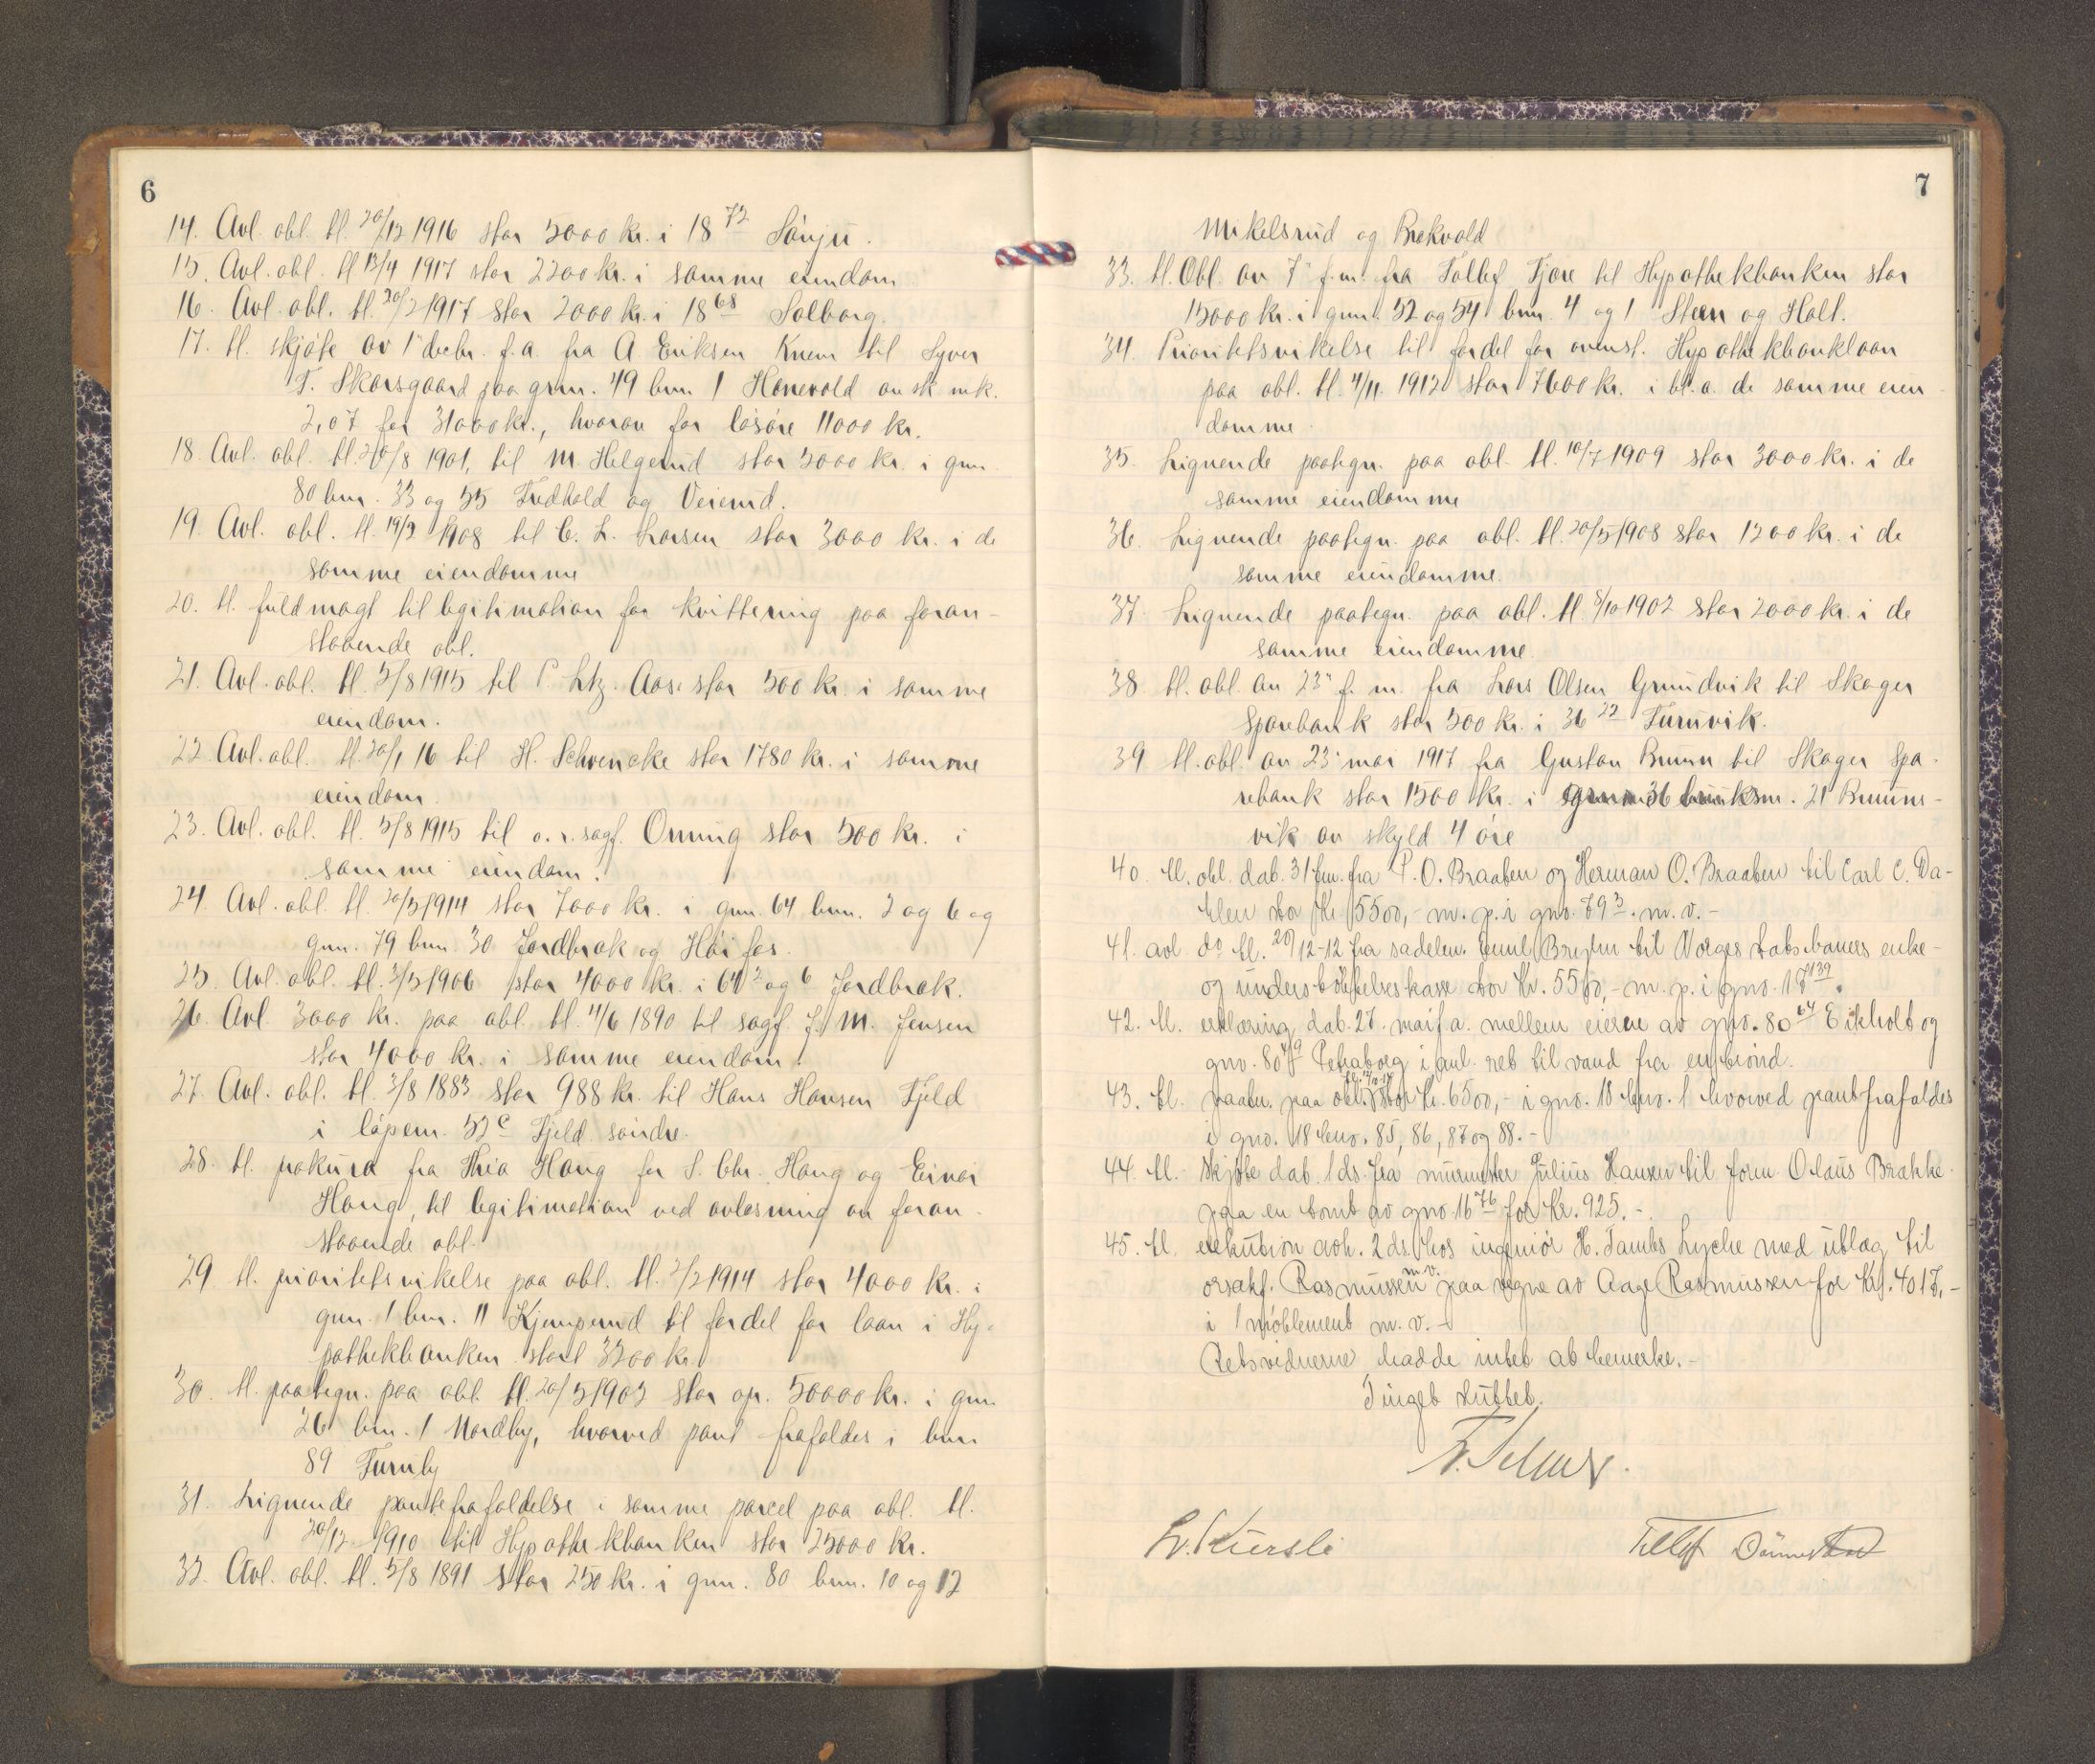 6
14. Avl. obl. tl. 20/12 1916 stor 5000 kr. i 18 72 Sönju.
15. Avl. obl. tl 13/4 1917 stor 2200 kr. i samme eiendom
16. Avl. obl. tl. 20/2 1917 stor 2000 kr. i 18 68 Solborg.
17. tl. skjøte av 1' decbr. f.a. fra A. Eriksen Knem til Syver
T. Skarsgaard paa gnr. 49 bnr. 1 Honerold av sk mk.
2,07 for 31000 kr., hvorav for løsøre 11000 kr.
18. Avl. obl. tl. 20/8 1901, til M. Helgerud stor 5000 kr. i gnr.
80 bnr. 33 og 55 Fredhold og Veierud.
19. Avl. obl. tl. 19/3 1908 til C. L. Larsen stor 3000 kr. i de
samme eiendomme
20. tl. fuldmagt til legitimation for kvittering paa foran-
staaende obl.
21. Avl. obl. tl. 5/8 1915 til P. Ltz. Aas. stor 500 kr. i samme
eiendom.
22. Avl. obl. tl. 20/1 16 til H. Schwencke stor 1780 kr. i samme
eiendom.
23. Avl. obl. tl. 5/8 1915 til o.r.sagf. Onning stor 500 kr. i
samme eiendom.
24. Avl. obl. tl. 20/5 1914 stor 7000 kr. i gnr. 64 bnr. 2 og 6 og
gnr. 79 bnr. 30 Jordbrek og Höifos.
25. Avl. obl. tl. 3/5 1906 stor 4000 kr. i 64 2 og 6 Jordbrek.
26. Avl. 3000 kr. paa obl. tl. 4/6 1890 til sagf. J. M. Jensen
stor 4000 kr. i samme eiendom.
27. Avl. obl. tl. 3/8 1883 stor 988 kr. til Hans Hansen Fjeld
i løpenr. 52c Fjeld söndre.
28. tl. prokura fra Thea Haug for S. Chr. Haug og Einar
Haug, til legitimation ved avløsning av foran-
staaende obl.
29. tl. prioritetsvikelse paa obl. tl. 2/2 1914 stor 4000 kr. i
gnr. 1 bnr. 11 Kjemperud til fordel for laan i Hy-
pothekbanken stort 3200 kr.
30. tl. paategn. paa obl. tl. 20/5 1903 stor opr. 50000 kr. i gnr.
26 bnr. 1 Nordby, hvorved pant frafaldes i bnr.
89 Furuby
31. Lignende pantefrafaldelse i samme parcel paa obl. tl.
20/12 1910 til Hypothekbanken stor 25000 kr.
32. Avl. obl. tl. 5/8 1891 stor 250 kr. i gnr. 80 bnr. 10 og 12
7
Mikelsrud og Brekvold
33. tl. Obl. av 7' f.m. fra Tollef Fjære til Hypothekbanken stor
15000 kr. i gnr. 52 og 54 bnr. 4 og 1 Steen og Holt.
34. Prioritetsvikelse til fordel for ovenst. Hypothekbanklaan
paa obl. tl. 4/11. 1912 stor 7600 kr. i bl.a. de samme eien
domme.
35. Lignende paategn. paa obl. tl. 10/7 1909 stor 3000 kr. i de
samme eiendomme
36. Lignende paategn. paa obl. tl. 20/5 1908 stor 1200 kr. i de
samme eiendomme.
37. Lignende paategn. paa obl. tl. 8/10 1902 stor 2000 kr. i de
samme eiendomme.
38 tl. obl. av 23' f. m. fra Lars Olsen Grundvik til Skoger
Sparebank stor 500 kr. i 36 22 Furuvik.
39 tl. obl. av 23' mai 1917 fra Gustav Bruun til Skoger Spa-
rebank stor 1500 kr. i gnr. 36 bruksnr. 21 Bruuns-
vik av skyld 4 øre
40. tl. obl. dat. 31 f.m. fra P. O. Braaten og Herman O. Braaten til Carl C. Da-
hlen stor kr. 5500,- m. p. i gno. 79 3. m. v.-
41. avl do tl. 20/12-12 fra sadelm. Emil til Norges Statsbaners enke-
og understøttelseskasse stor kr. 5500,- m. p. i gno. 17 139.
42. tl. erklæring dat. 27. mai f.a. mellem eierne av gno. 80 64 Eikholt og
gno. 80 Petraborg i anl. ret til vand fra en brønd.
43. tl. paatn. paa obl. stor kr. 6500,- i gno. 18 bno. 1 hvorved pant frafaldes
i gno. 18 bno. 85, 86, 87 og 88.-
44. tl. skjøte dat. 1 ds. fra murmester Julius Hansen til form Olaus Brakke
paa en tomt av gno. 16 76 for kr. 925.-
45. tl. exekution avh. 2 ds. hos ingeniør H. Tambs Lyche med utlæg til
orsakf. Rasmussen m.v. paa vegne av Aage Rasmussen for kr. 4017,-
i 1 møblement m. v.-
Retsvidnerne hadde intet at bemerke.-
Tinget sluttet.